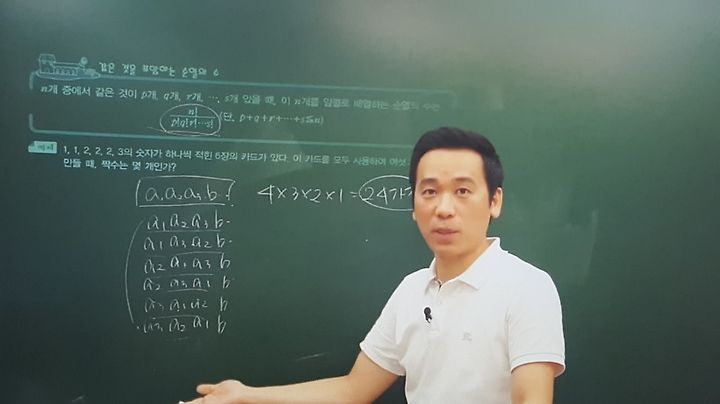 같은 것을 포함하는 순열의 수
n개 중에서 같은 것이 p개, q개, r개, …, s개 있을 때, 이 n개를 일렬로 배열하는 순열의 수는
n!/p!q!r!…s! (단, p+q+r+…+s=n)
예제 1, 1, 2, 2, 2, 3의 숫자가 하나씩 적힌 6장의 카드가 있다. 이 카드를 모두 사용하여 여섯
만들 때, 짝수는 몇 개인가?
a₁ a₂ a₃ b
4×3×2×1=24가지
a₁ a₂ a₃ b
a₁ a₃ a₂ b
a₂ a₁ a₃ b
a₂ a₃ a₁ b
a₃ a₁ a₂ b
a₃ a₂ a₁ b